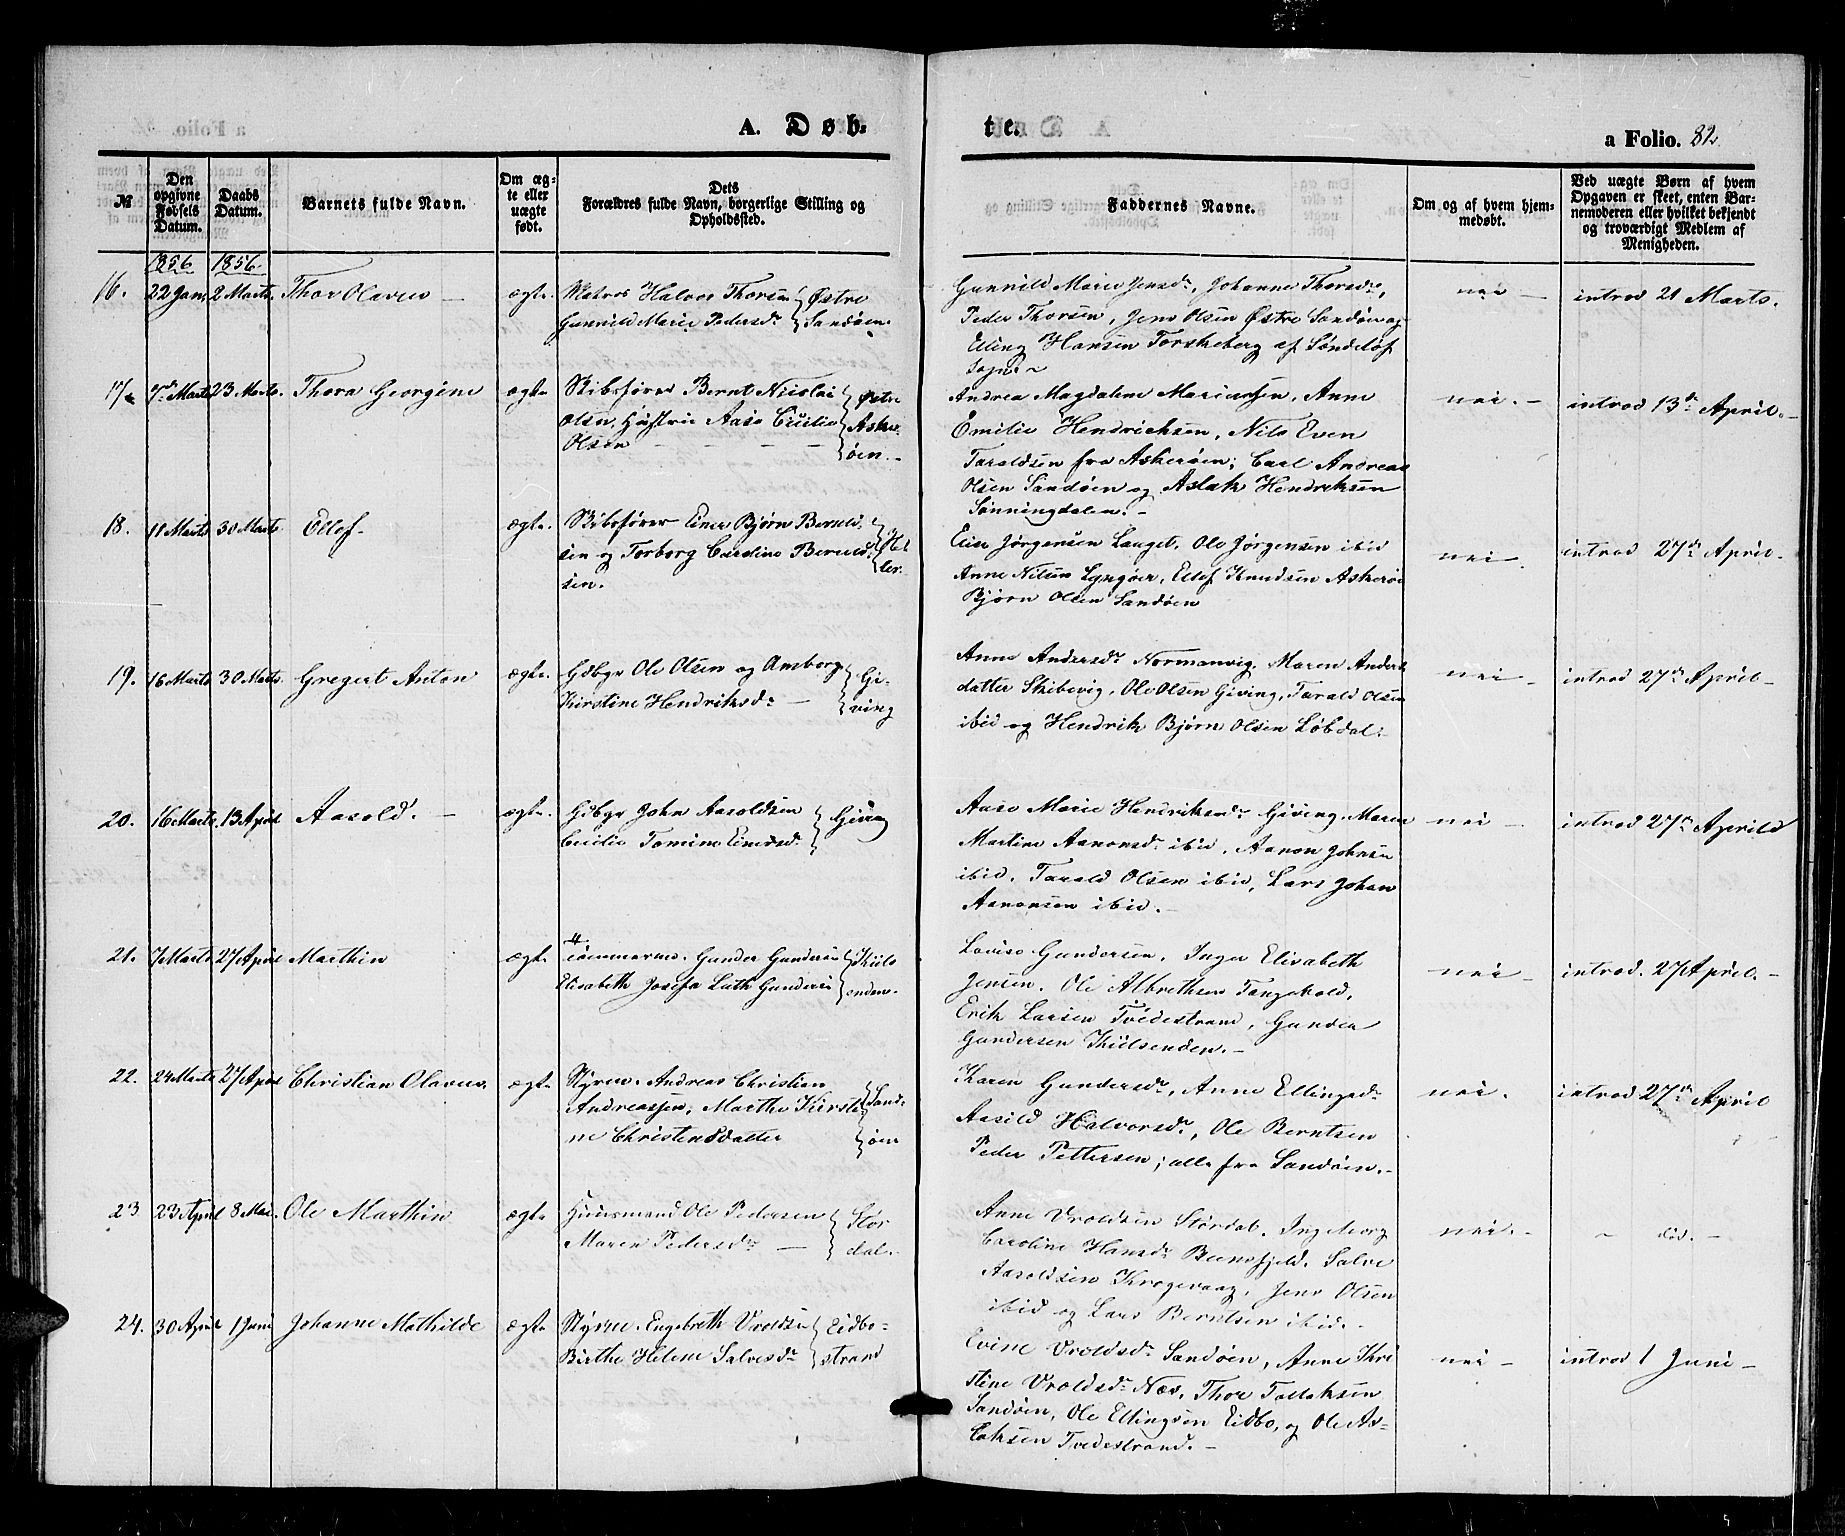 A. Døb-
te.
a Folio. 82.
№
Den opgivne Fødsels Datum.
Daabs Datum.
Barnets fulde Navn.
Om ægte eller uægte født.
Dets Forældres fulde Navn, borgerlige Stilling og Opholdssted.
Faddernes Navne.
Om og af hvem hjemmedøbt.
Ved uægte Børn af hvem Opgaven er skeet, enten Barnemoderen eller hvilket bekjendt og troværdigt Medlem af Menigheden.
1856 1856
16. 22 Jan. 2 Marts. Thor Olaves — ægte. Matros Halvor Thorsen
Gunnild Marie Pedersdr. } Østre Sandøen.
Gunnild Marie Jensdr, Johanne Thorsdr,
Peder Thorsen, Jens Olsen Østre Sandøen og
Elling Hansen Torskeberg af Søndeløf
Sogn.
nei — introd 21 Marts.
17. 7de Marts 23 Marts. Thora Georgine ægte Skibsfører Bernt Nicolai
Olsen, Hustrue Aase Cecilie
Olsen — — — } Østre Askerøen.
Andrea Magdalene Mariussen, Anne
Emilie Hendrichsen, Nils Even
Taraldsen fra Askerøen; Carl Andreas
Olsen Sandøen og Aslak Hendriksen
Sønningdalen. —
nei. — introd 13de April. —
18. 11 Marts 30 Marts. Ellef. ægte. Skibsfører Einer Bjørn Beruld-
sen og Torborg Caroline Beruld-
sen.
Eier Jørgensen Lauget, Ole Jørgensen ibid
Anne Nilsen Lyngøer, Ellef Knudsen Askerøe
Bjørn Olsen Sandøen
nei — introd 27de April —
19. 16 Marts 30 Marts. Gregert Anton ægte. Gdbgr Ole Olsen og Amborg
Kirstine Hendriksdr — } Giving
Anne Andersdr Normanvig, Maren Anders
datter Skibevig, Ole Olsen Giving, Tarald Olsen
ibid og Hendrik Bjørn Olsen Løbdal. —
nei — introd 27de April —
20. 16 Marts. 13 April Aasold. — ægte. Gdbgr John Aasoldsen
Cecilie Tomine Einersdr } Giving
Aase Marie Hendriksdr Giving, Maren
Martine Aanonsdr ibid, Aanon Johnsen
ibid, Tarald Olsen ibid, Lars Johan
Aanonsen ibid. —
nei — introd 27de Aprild
21. 7 Marts 27 April Marthin ægte Tømmermd. Gunder Gundersen
Elisabeth Josefa Gundersen } Kiilsenden.
Lovise Gundersen, Inger Elisabeth
Jensen, Ole Albrethsen Tangehold,
Erik Larsen Tvedestrand, Gunder
Gundersen Kiilsenden. —
nei — introd. 27 April. —
22. 24 Marts 27 April Christian Olaves. ægte Styrm. Andreas Christian
Andreassen, Marthe Kirsti-
ne Christensdatter } Sandøen
Karen Gundersdr, Anne Ellingsdr
Aasild Halvorsdr, Ole Berntsen
Peder Pettersen; alle fra Sandøen. —
nei. introd 27de April
23 23 April 8 Mai. Ole Marthin ægte Huusmand Ole Pedersen
Maren Pedersdr — } Stordal.
Anne Vroldsen Stordal, Ingeborg
Caroline Hansdr Beensfjeld, Salve
Aasoldsen Krogevaag, Jens Olsen
ibid og Lars Berntsen ibid. —
nei. — død. —
24. 30 April 1 Juni Johanne Mathilde ægte Styrm. Engebreth Vroldsen
Birthe Helene Salvesdr } Eidbo-
strand
Evine Vroldsdr Sandøen, Anne Kri
stine Vroldsdr Næs, Thor Tallaksen
Sandøen, Ole Ellingsen Eidbo, og Ole As-
laksen Tvedestrand. —
nei — introd 1 Juni —